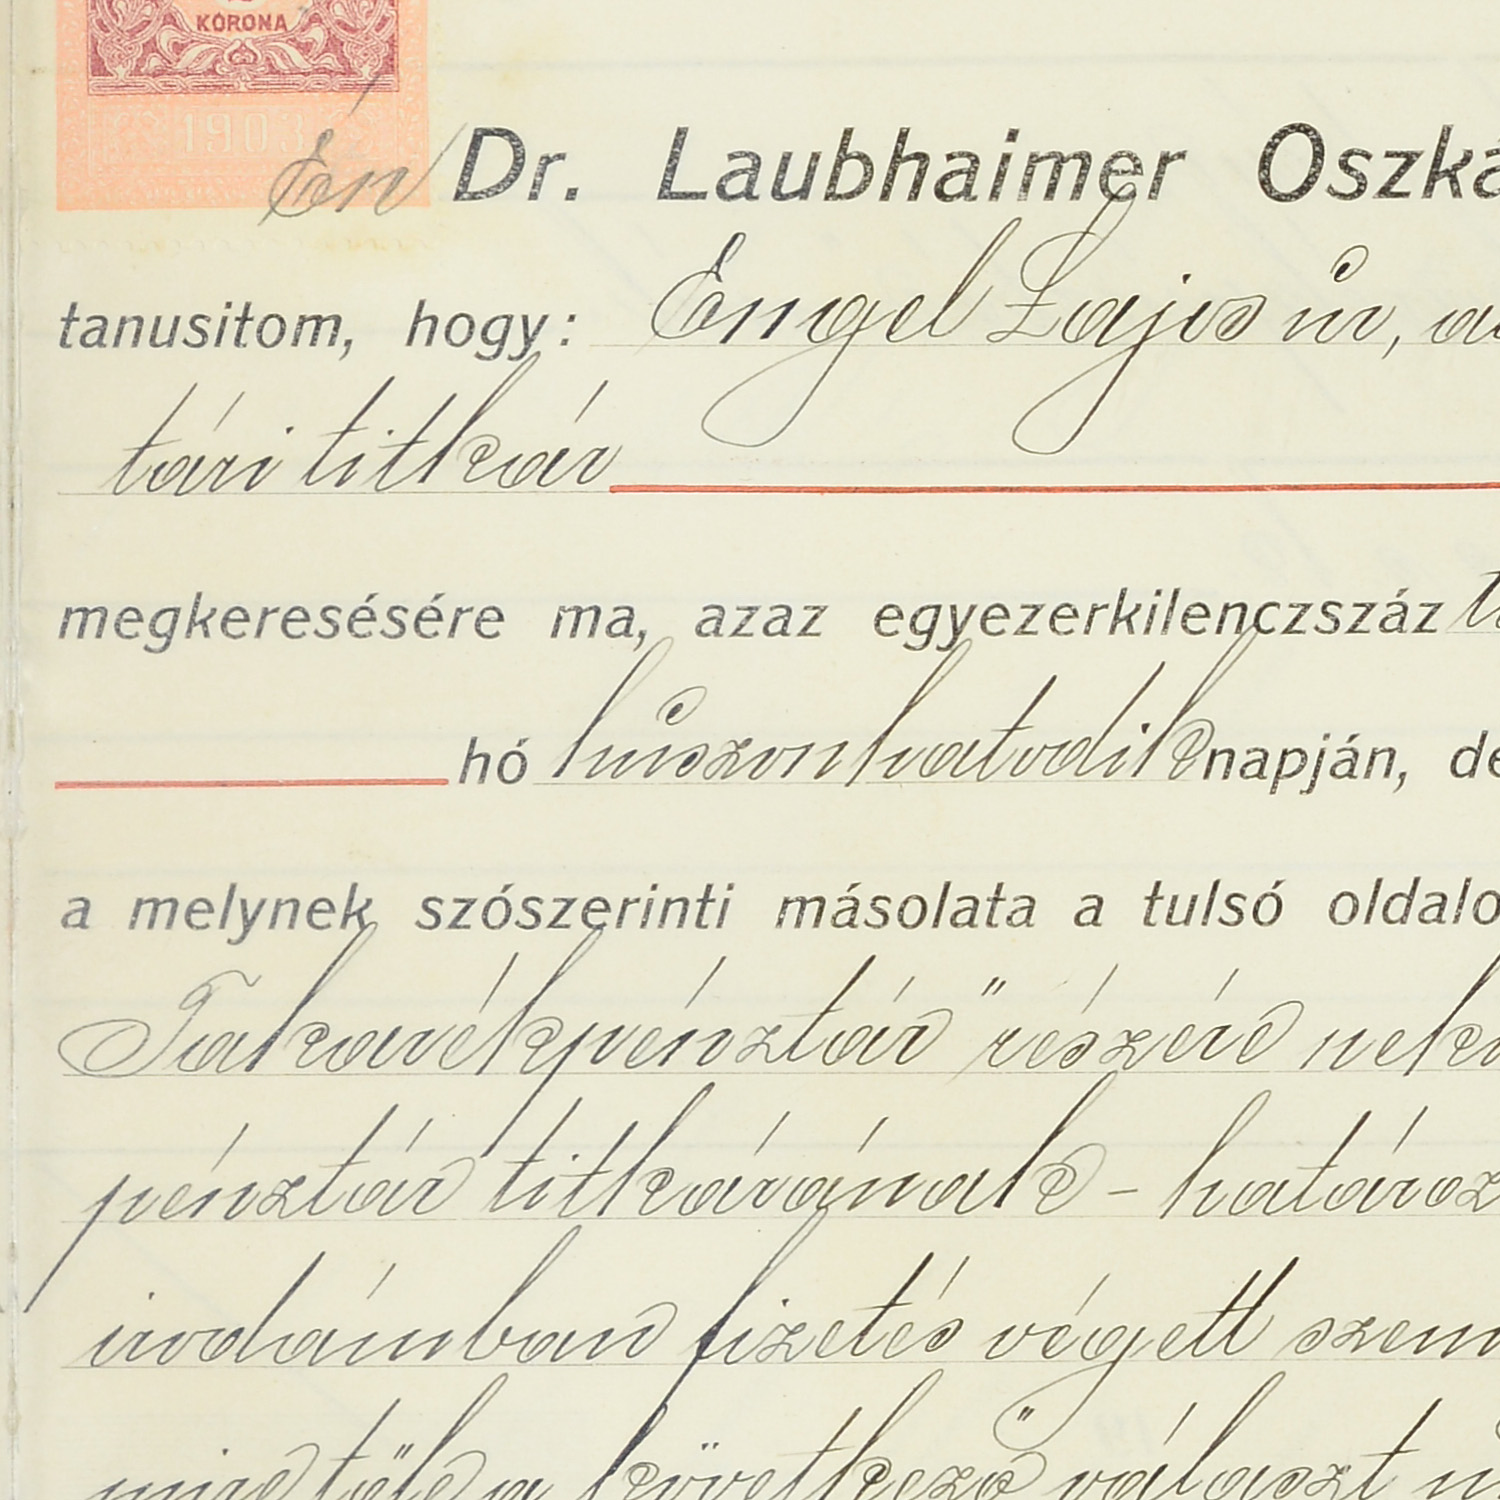 KORONA
1903
Én Dr. Laubhaimer Oszká
tanusitom, hogy: Engel Lajos úr, a
tári titkár
megkeresésére ma, azaz egyezerkilenczszáz
hó húszonhatodik napján, de
a melynek szószerinti másolata a tulsó oldalo
Takarékpénztár" részére nek
pénztár titkárának - határoz
irodámban fizetés végett szem
mire tőle a következő választ